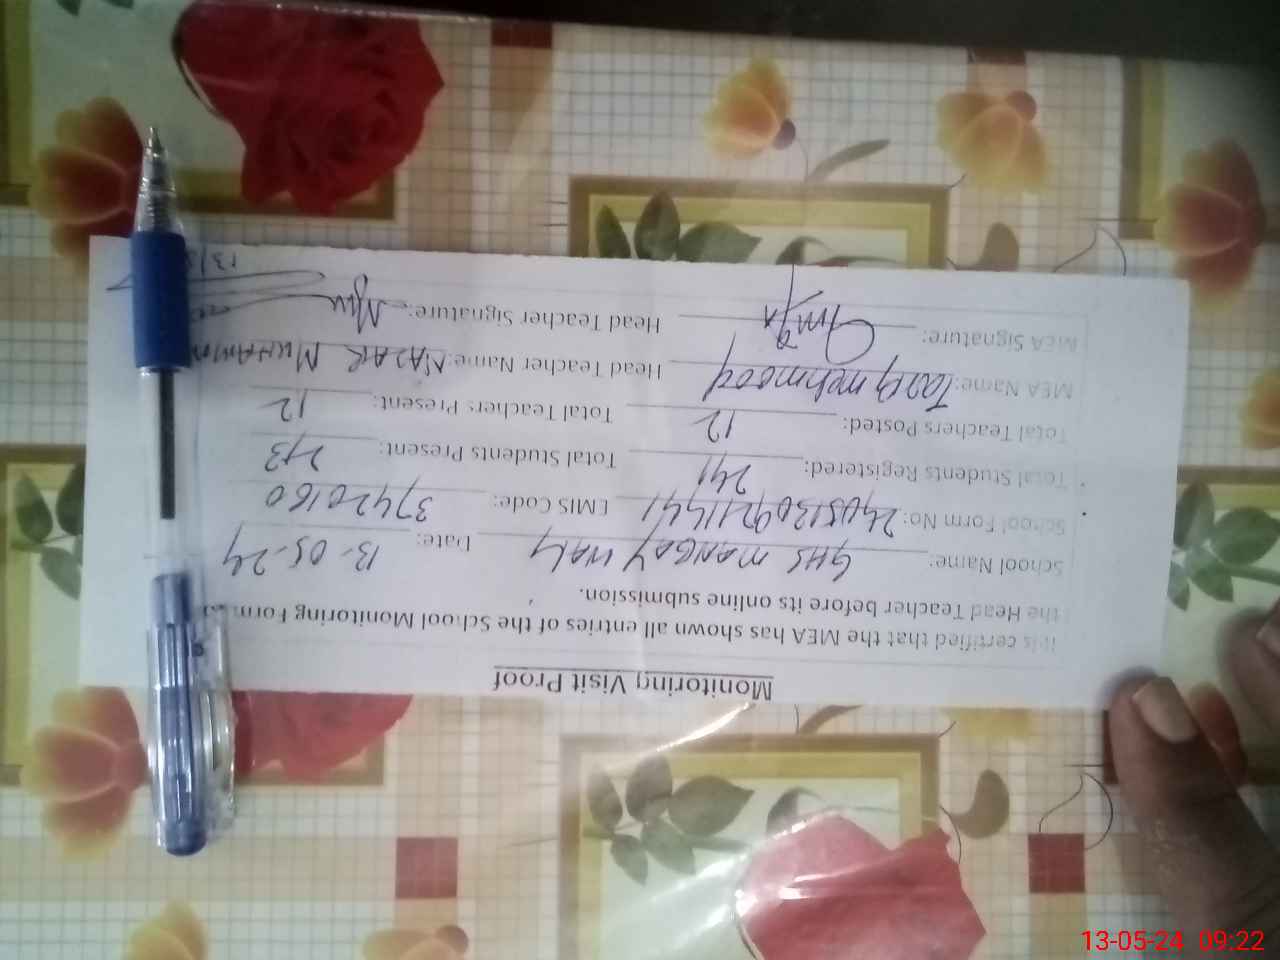 Monitoring Visit Proof
It is certified that the MEA has shown all entries of the School Monitoring Form to
the Head Teacher before its online submission.
School Name: GHS MANGAY WALY Date: 13-05-24
School Form No: EMIS Code: 37420160
Total Students Registered: 241 Total Students Present: 213
Total Teachers Posted: 12 Total Teachers Present: 12
MEA Name: Tariq mehmood Head Teacher Name: NAZAR MUHAMMA
MEA Signature: Head Teacher Signature:
13/5
13-05-24 09:22